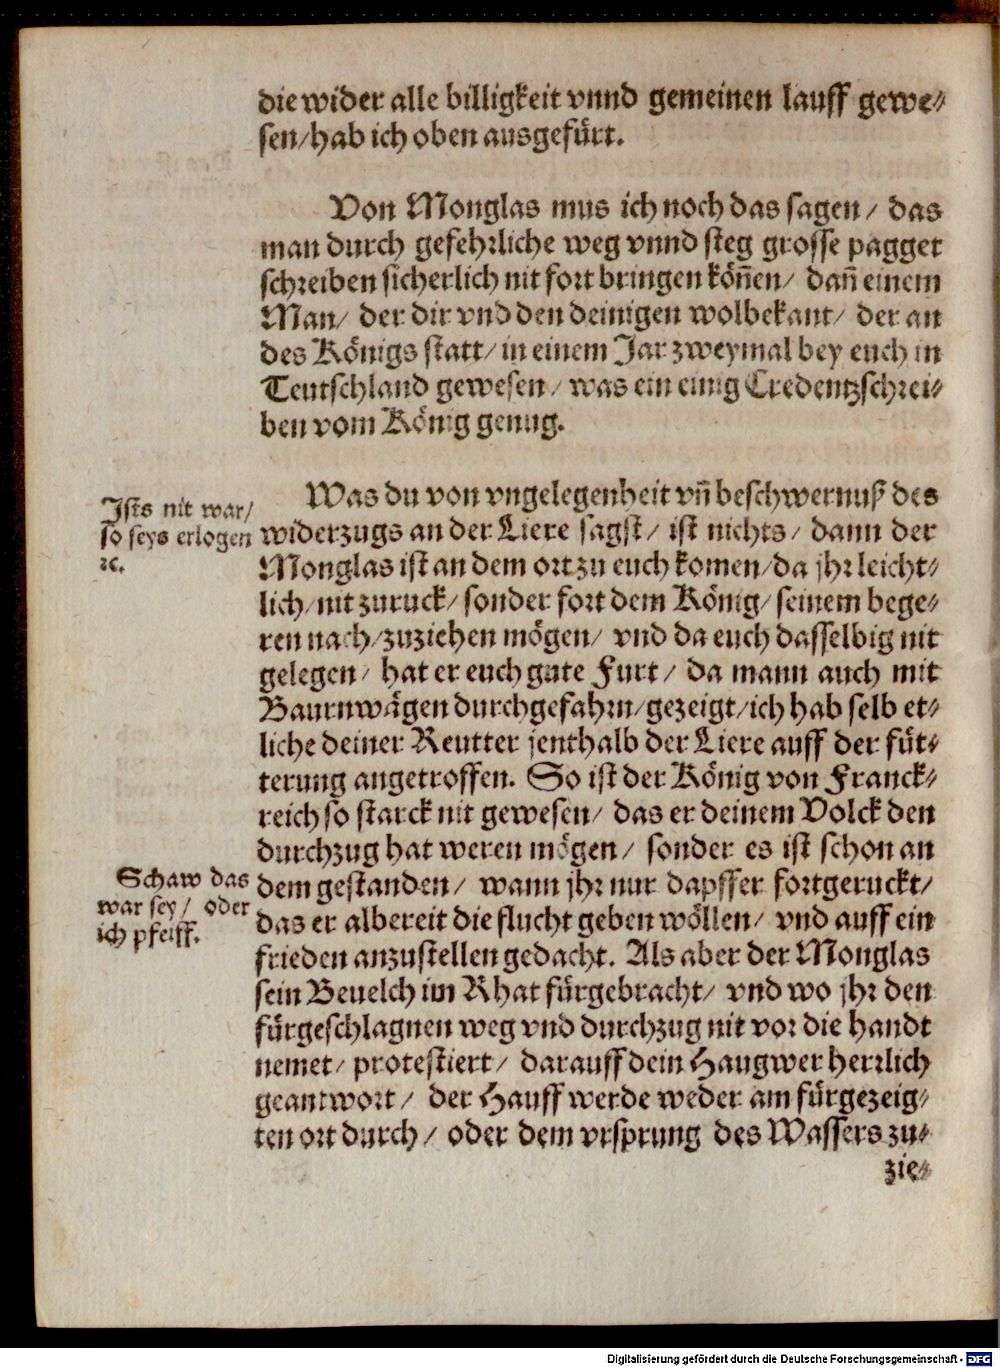 die wider alle billigkeit vnnd gemeinen lauff gewe⸗
sen/hab ich oben ausgefürt.
Von Monglas mus ich noch das sagen/ das
man durch gefehrliche weg vnnd steg grosse pagget
schreiben sicherlich nit fort bringen köñen/ dañ einem
Man/ der dir vnd den deinigen wolbekant/ der an
des Königs statt/ in einem Jar zweymal bey euch in
Teutschland gewesen/ was ein einig Credentzschrei⸗
ben vom König genug.
Was du von vngelegenheit vñ beschwernuß des
widerzugs an der Liere sagst/ ist nichts/ dann der
Monglas ist an dem ort zu euch komen/da jhr leicht⸗
lich/nit zuruck/ sonder fort dem König/ seinem bege⸗
ren nach/zuziehen mögen/ vnd da euch dasselbig nit
gelegen/ hat er euch gute Furt/ da mann auch mit
Baurnwägen durchgefahrn/gezeigt/ich hab selb et⸗
liche deiner Reutter jenthalb der Liere auff der füt⸗
terung angetroffen. So ist der König von Franck⸗
reich so starck nit gewesen/ das er deinem Volck den
durchzug hat weren mögen/ sonder es ist schon an
dem gestanden/ wann jhr nur dapffer fortgeruckt/
das er albereit die flucht geben wöllen/ vnd auff ein
frieden anzustellen gedacht. Als aber der Monglas
sein Beuelch im Rhat fürgebracht/ vnd wo jhr den
fürgeschlagnen weg vnd durchzug nit vor die handt
nemet/ protestiert/ darauff dein Haugwer herrlich
geantwort/ der Hauff werde weder am fürgezeig⸗
ten ort durch/ oder dem vrsprung des Wassers zu⸗
zie⸗
Ists nit war/
so seys erlogen
ꝛc.
Schaw das
war sey/ oder
ich pfeiff.
Digitalisierung gefördert durch die Deutsche Forschungsgemeinschaft - DFG